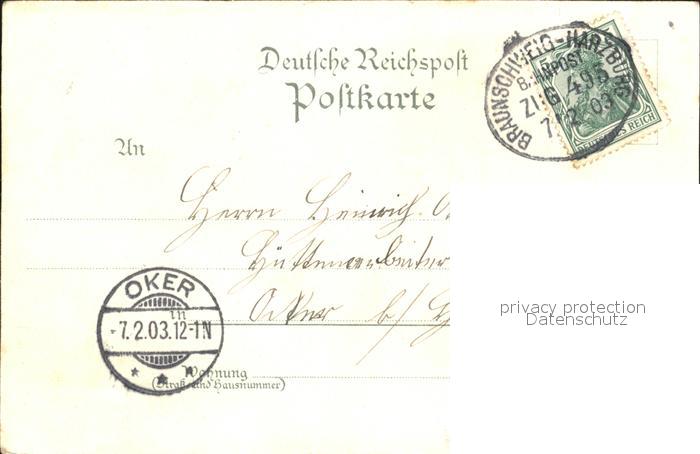 Deutsche Reichspost
Postkarte
BRAUNSCHWEIG-HARZBURG
BAHNPOST
ZUG 495
7.2.03
DEUTSCHES REICH
An
Herrn Heinrich
Hüttenarbeiter
Ocker b/ H
in
OKER
-7.2.03.12-1N
Wohnung
(Straße und Hausnummer)
privacy protection
Datenschutz